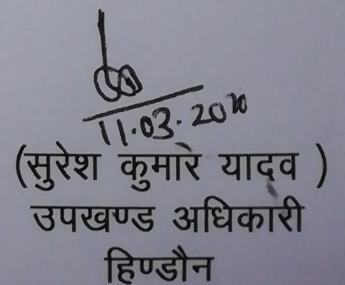 11.03.2020
(सुरेश कुमारे यादव )
उपखण्ड अधिकारी
हिण्डौन